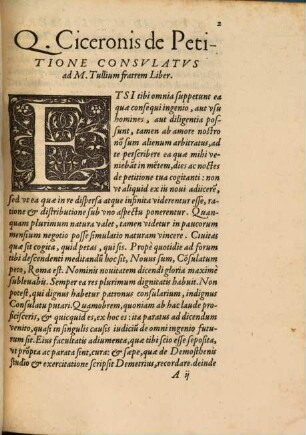 2
Q. Ciceronis de Peti-
TIONE CONSVLATVS
ad M. Tullium fratrem Liber.
ETSI tibi omnia suppetunt ea
quæ consequi ingenio, aut vsu
homines, aut diligentia pos-
sunt, tamen ab amore nostro
nō sum alienum arbitratus, ad
te perscribere ea quæ mihi ve-
niebāt in mētem, dies ac noctes
de petitione tua cogitanti: non
vt aliquid ex iis noui adiscerē,
sed vt ea quæ in re dispersa atque infinita viderentur esse, ra-
tione & distributione sub vno aspectu ponerentur. Quan-
quam plurimum natura valet, tamen videtur in paucorum
mensium negotio posse simulatio naturam vincere. Ciuitas
quæ sit cogita, quid petas, qui sis. Propè quotidie ad forum
tibi descendenti meditandū hoc sit, Nouus sum, Cōsulatum
peto, Roma est. Nominis nouitatem dicendi gloria maximè
subleuabit. Semper ea res plurimum dignitatis habuit. Non
potest, qui dignus habetur patronus consularium, indignus
Consulatu putari. Quamobrem, quoniam ab hac laude pro-
ficisceris, & quicquid es, ex hoc es: ita paratus ad dicendum
venito, quasi in singulis causis iudiciū de omni ingenio futu-
rum sit. Eius facultatis adiumenta, quæ tibi scio esse seposita,
vt prōpta ac parata sint, cura: & sæpe, quæ de Demosthenis
studio & exercitatione scripsit Demetrius, recordare. deinde
A ij